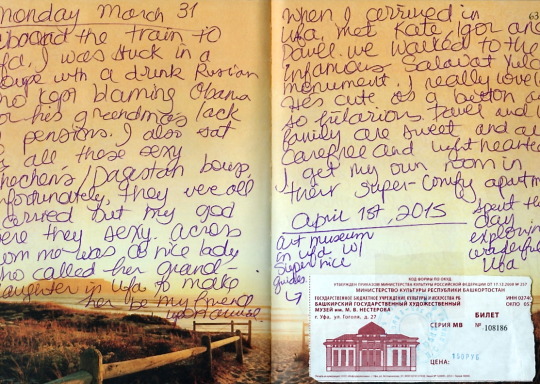 Monday March 31
aboard the train to
Ufa, I was stuck in a
coupe with a drunk Russian
who kept blaming Obama
for his grandma's lack
of pension. I also sat
all these sexy
Chechens/Dagestan boys,
unfortunately, they were all
married but my god
were they sexy, across
from me was a nice lady
who called her grand-
daughter in Ufa to make
her be my friend
When I arrived in
Ufa, met Kate, Igor and
Pavel. We walked to the
infamous Salavat Yulaev
monument. I really love
He's cute as a button and
so hilarious. Pavel and
family are sweet and are
carefree and lighthearted
I get my own room in
their super-comfy apartment
63
April 1st, 2015
art museum
in Ufa w/
super nice
guides
spent the
day
exploring
wonderful
Ufa
КОД ФОРМЫ ПО ОКУД
УТВЕРЖДЕН ПРИКАЗОМ МИНИСТЕРСТВА КУЛЬТУРЫ РОССИЙСКОЙ ФЕДЕРАЦИИ ОТ 17.12.2008 № 257
МИНИСТЕРСТВО КУЛЬТУРЫ РЕСПУБЛИКИ БАШКОРТОСТАН
ГОСУДАРСТВЕННОЕ БЮДЖЕТНОЕ УЧРЕЖДЕНИЕ КУЛЬТУРЫ И ИСКУССТВА РБ
БАШКИРСКИЙ ГОСУДАРСТВЕННЫЙ ХУДОЖЕСТВЕННЫЙ
МУЗЕЙ им. М. В. НЕСТЕРОВА
г. Уфа, ул. Гоголя, д. 27
ИНН 0274
ОКПО
БИЛЕТ
СЕРИЯ МВ № 108186
ЦЕНА: